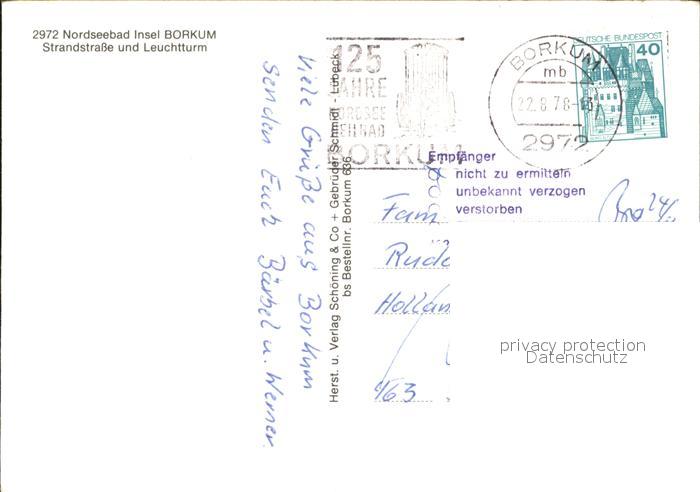 2972 Nordseebad Insel BORKUM
Strandstraße und Leuchtturm
Viele Grüße aus Borkum
senden Euch Bärbel u. Werner.
Herst. u. Verlag Schöning & Co + Gebrüder Schmidt - Lübeck
bs Bestellnr. Borkum 636
125
JAHRE
NORDSEE
HEILBAD
BORKUM
BORKUM
mb
22.8.78-13
2972
DEUTSCHE BUNDESPOST
40
Empfänger
nicht zu ermitteln
unbekannt verzogen
verstorben
Fam
463
privacy protection
Datenschutz